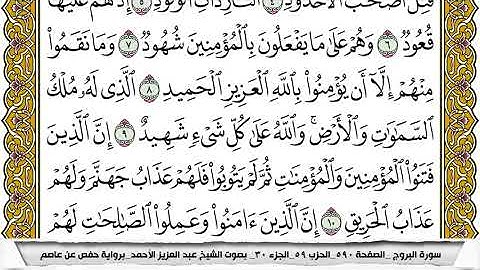 قُتِلَ أَصْحَٰبُ ٱلْأُخْدُودِ ٤ ٱلنَّارِ ذَاتِ ٱلْوَقُودِ ٥ إِذْ هُمْ عَلَيْهَا
قُعُودٌ ٦ وَهُمْ عَلَىٰ مَا يَفْعَلُونَ بِٱلْمُؤْمِنِينَ شُهُودٌ ٧ وَمَا نَقَمُوا۟
مِنْهُمْ إِلَّآ أَن يُؤْمِنُوا۟ بِٱللَّهِ ٱلْعَزِيزِ ٱلْحَمِيدِ ٨ ٱلَّذِى لَهُۥ مُلْكُ
ٱلسَّمَٰوَٰتِ وَٱلْأَرْضِ ۚ وَٱللَّهُ عَلَىٰ كُلِّ شَىْءٍ شَهِيدٌ ٩ إِنَّ ٱلَّذِينَ
فَتَنُوا۟ ٱلْمُؤْمِنِينَ وَٱلْمُؤْمِنَٰتِ ثُمَّ لَمْ يَتُوبُوا۟ فَلَهُمْ عَذَابُ جَهَنَّمَ وَلَهُمْ
عَذَابُ ٱلْحَرِيقِ ١٠ إِنَّ ٱلَّذِينَ ءَامَنُوا۟ وَعَمِلُوا۟ ٱلصَّٰلِحَٰتِ لَهُمْ
سورة البروج _الصفحة ٥٩٠_ الحزب ٥٩_الجزء ٣٠_ بصوت الشيخ عبد العزيز الأحمد_برواية حفص عن عاصم